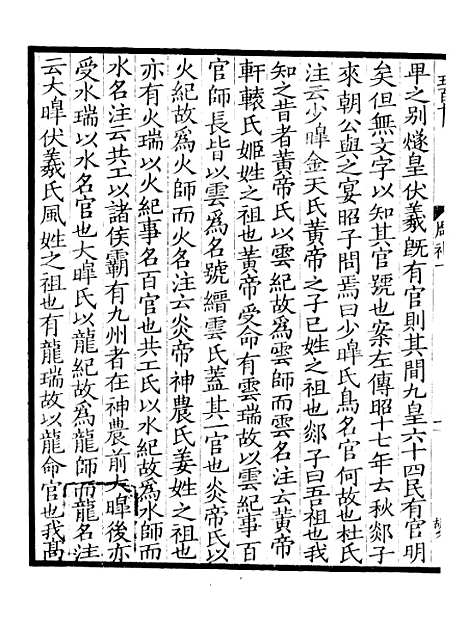 卑之別燧皇伏羲旣有官則其間九皇六十四民有官明
矣但無文字以知其官號也案左傳昭十七年云秋郯子
來朝公與之宴昭子問焉曰少皡氏鳥名官何故也杜氏
注云少皡金天氏黃帝之子已姓之祖也郯子曰吾祖也我
知之昔者黃帝氏以雲紀故爲雲師而雲名注云黃帝
軒轅氏姬姓之祖也黃帝受命有雲瑞故以雲紀事百
官師長皆以雲爲名號縉雲氏蓋其一官也炎帝氏以
火紀故爲火師而火名注云炎帝神農氏姜姓之祖也
亦有火瑞以火紀事名百官也共工氏以水紀故爲水師而
水名注云共工以諸侯霸有九州者在神農前大皡後亦
受水瑞以水名官也大皡氏以龍紀故爲龍師而龍名注
云大皡伏羲氏風姓之祖也有龍瑞故以龍命官也我高